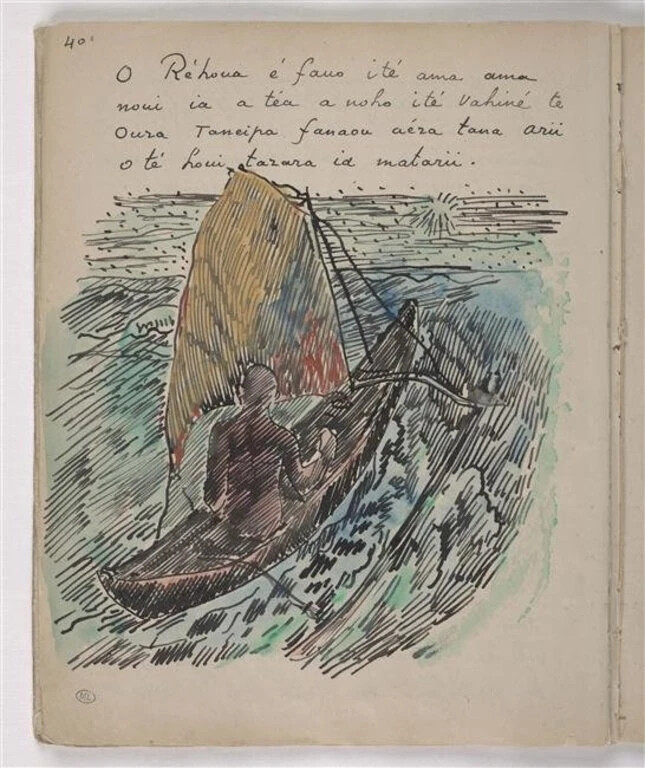 40.
O Réhoua é fauo ité ama ama
noui ia a téa a noho ité Vahiné te
Oura Taneipa fanaou aéra tana Arii
o té houi tarara ia matarii.
ML